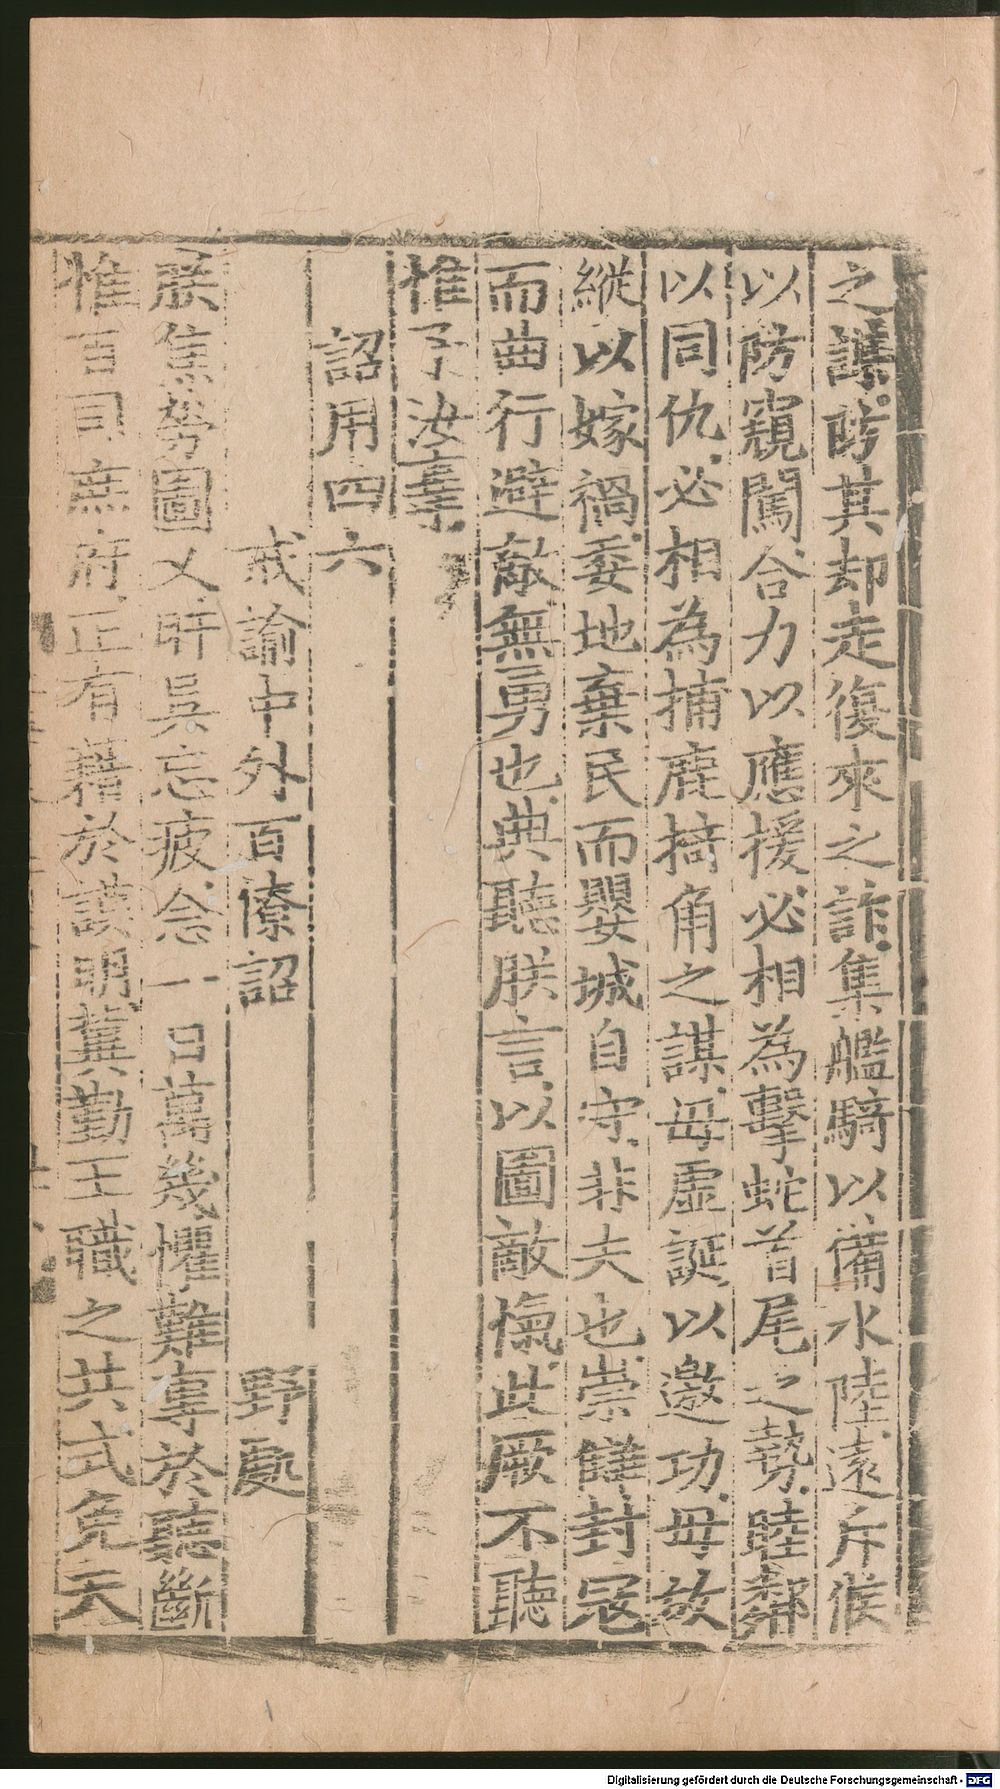 之謀防其却走復來之詐集艦騎以備水陸遠斥候
以防窺闖合力以應援必相為擊蛇首尾之勢睦鄰
以同仇必相為捕鹿掎角之謀毋虛誕以邀功毋故
縱以嫁禍委地棄民而嬰城自守非夫也崇讎封寇
而曲行避敵無勇也典聽朕言以圖敵愾此厥不聽
惟予汝辜
詔用四六
戒諭中外百僚詔 野處
朕焦勞圖乂旰昃忘疲念一日萬幾懼難專於聽斷
惟百司庶府正有藉於謨明冀勤王職之共式克天
Digitalisierung gefördert durch die Deutsche Forschungsgemeinschaft - DFG